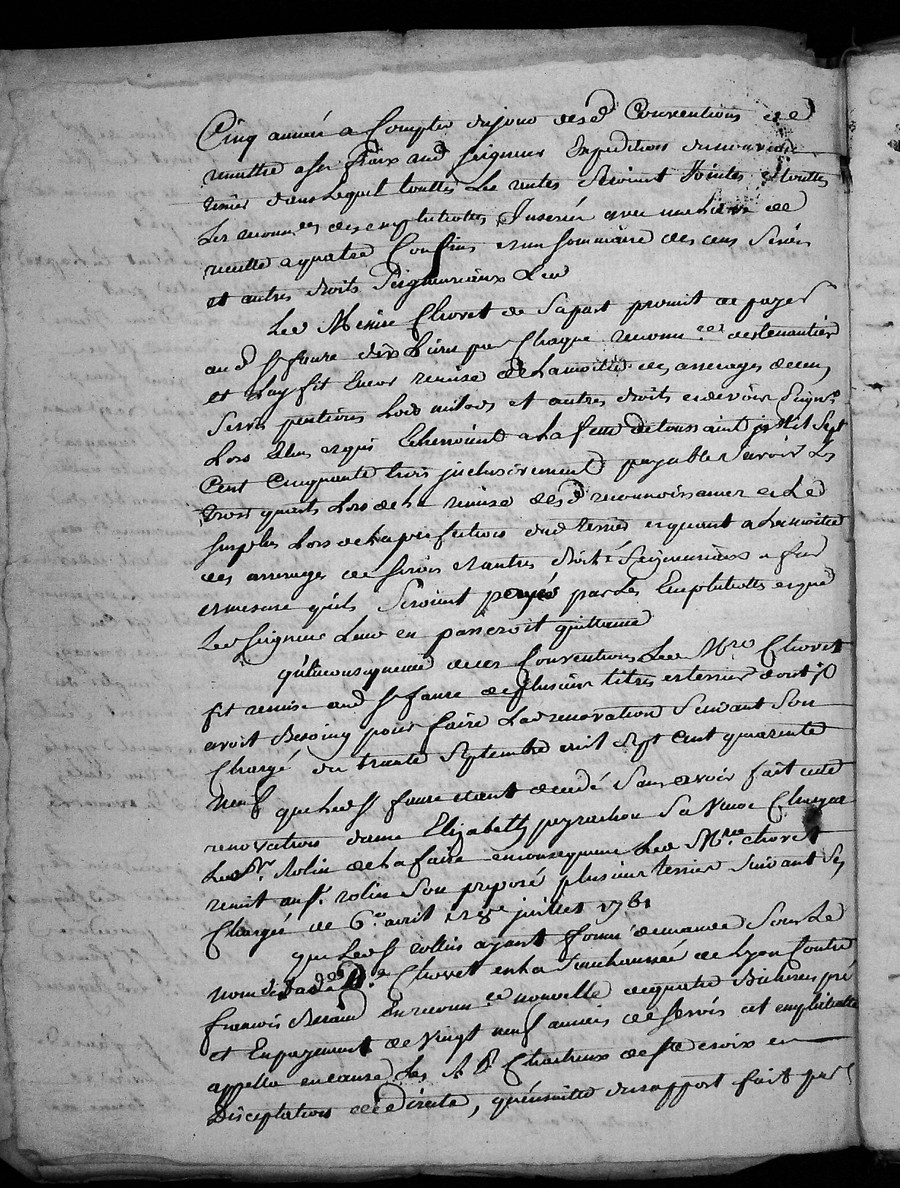 Cinq années a Compter du jour desd Conventions et de
remettre a ses fraix aud seigneur Expedition du nouveau
terrier dans lequel touttes Les rentes Seroient Jointes et touttes
Les reconn.ces des emphitéotes Inserées avec une de
nouvelle a quatre Confins et un sommaire des cens Servis
et autres droits Seigneuriaux Led
Led Messire Chovet de promit de payer
aud Sr faure dix Livres par Chaque reconn.ce des tenantiers
et Luy fit Encor remise de La moitié des arrerages de cens
Servis pentions Lods milods et autres droits et devoirs Seign.x
Lors Echus et qui Echerroient a La feste de toussaint mil Sept
Cent Cinquante trois inclusivement payable Scavoir Les
trois quarts Lors de La remise desd reconnoissances et Le
surplus Lors de La perfection dud terrier et quant a La moitié
des arrerages de servis et autres droits Seigneuriaux a fur
et mesure qu'ils Seroient payés par Les Emphitéotes et que
Led seigneur Leur en passeroit quittance
qu'En consequence de ces Conventions Led Mre Chovet
fit remise aud Sr faure de plusieurs titres et terriers dont il
avoit Besoing pour faire Lad renovation Suivant Son
Chargé du trante Septembre mil Sept Cent quarente
neuf que Led Sr faure etant decedé Sans avoir fait cette
renovation dame Elizabeth peyrachon Sa Veuve Chargea
Led Sr. Rolin de La faire en consequence Led Mre chovet
remit au Sr. rolin Son preposé plusieurs terriers Suivant Ses
Chargés de 6e avril et 8e juillet 1761
que Led Sr rollin ayant formé demande Sous Le
nom dud Chovet en La Senechaussée de Lyon Contre
francois Beraud En reconn.ce nouvelle de quatre Bicherées pré
et En payement de Vingt neuf années de Servis cet emphiteote
appella en cause Les R P Chartreux de Ste croix en
Disceptation de directe, qu'ensuitte du rapport fait par